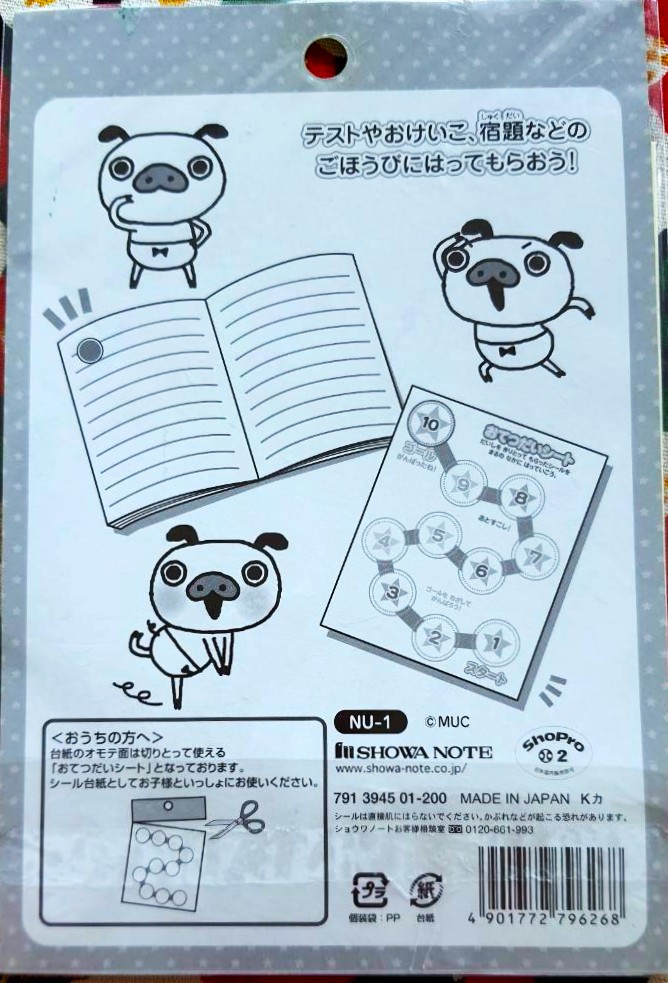 テストやおけいこ、宿題などの
しゅくだい
ごほうびにはってもらおう！
おてつだいシート
だいしを きりとって もらったシールを
まるの なかに はっていこう。
10
ゴール
がんばったね！
9
8
あとすこし！
7
6
5
4
3
ゴールを めざして
がんばろう！
2
1
スタート
＜おうちの方へ＞
台紙のオモテ面は切りとって使える
「おてつだいシート」となっております。
シール台紙としてお子様といっしょにお使いください。
NU-1 ©MUC
SHOWA NOTE
www.showa-note.co.jp/
ShoPro
2
791 3945 01-200 MADE IN JAPAN Kカ
シールは直接肌にはらないでください。かぶれなどが起こる恐れがあります。
ショウワノートお客様相談室 0120-661-993
プラ
個装袋：PP
紙
台紙
4 901772 796268